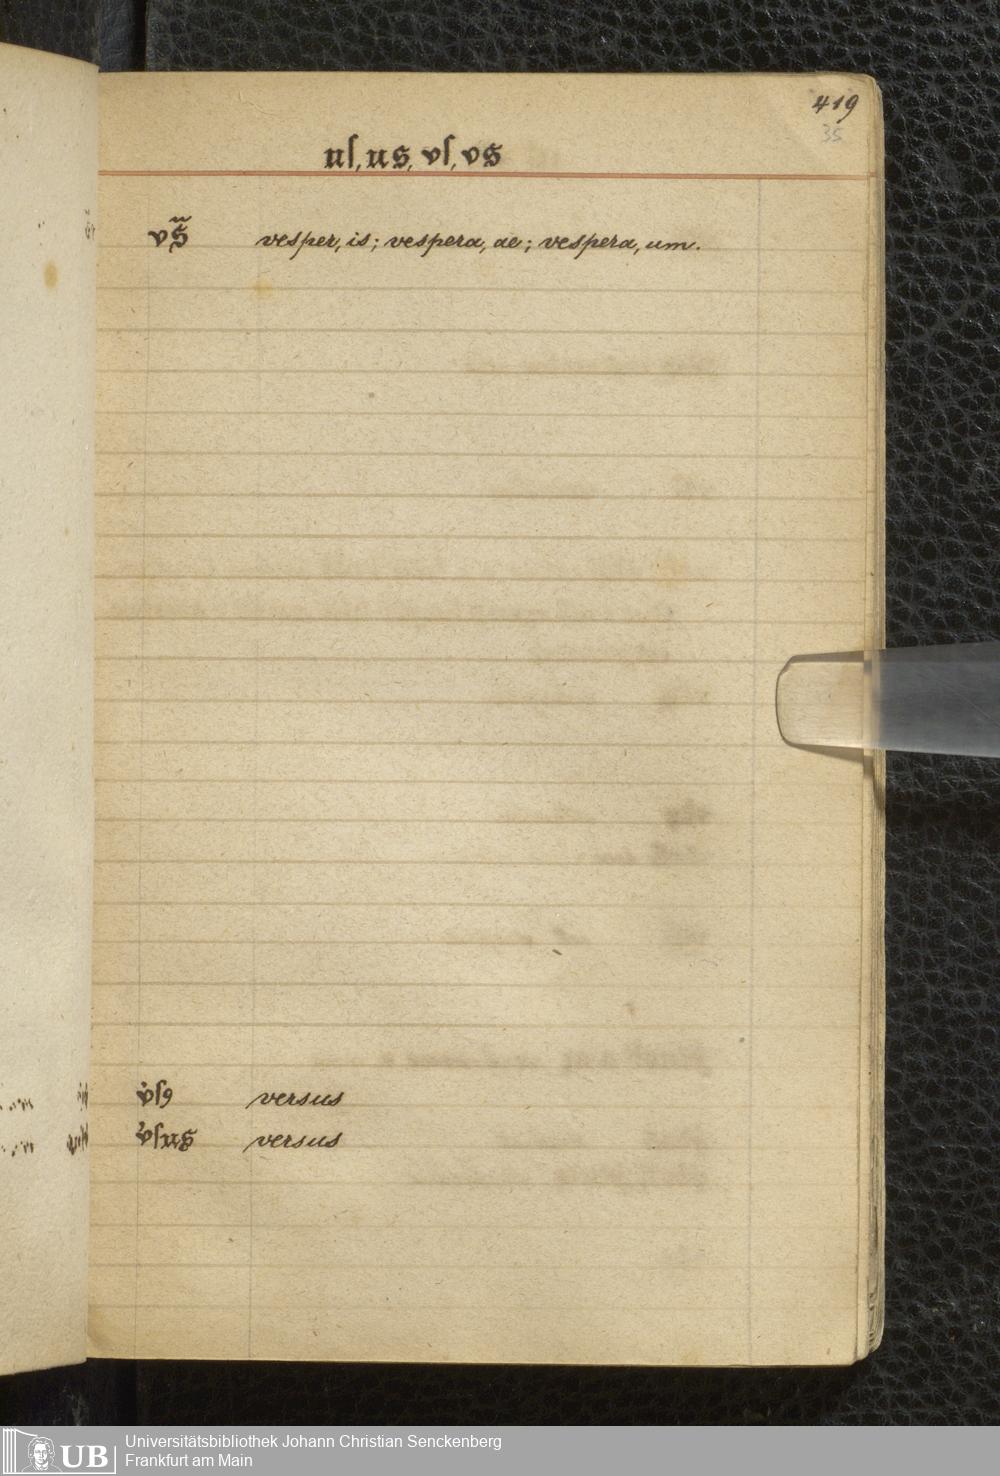 419
35
uſ, us, vſ, vs
vs̃ vesper, is; vespera, ae; vespera, um.
vſꝯ versus
vſus versus
UB
Universitätsbibliothek Johann Christian Senckenberg
Frankfurt am Main